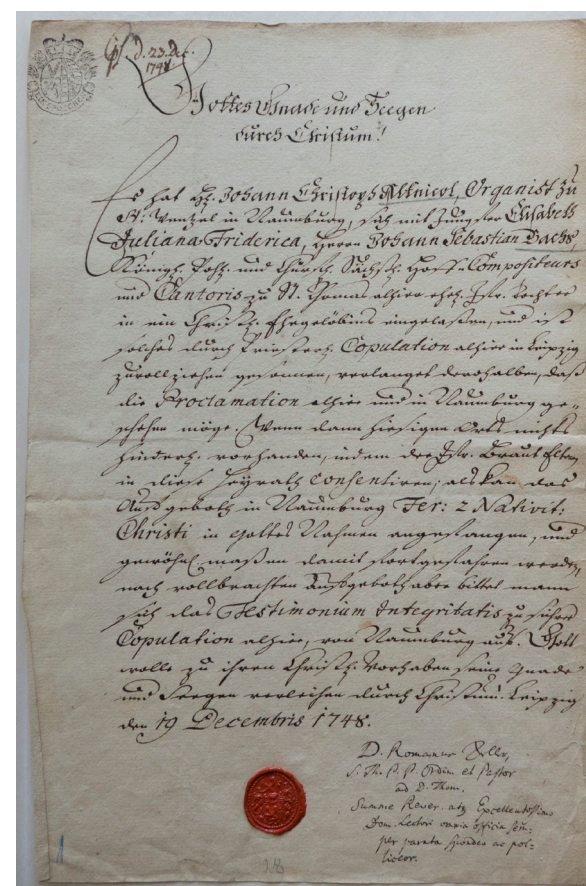 d. 23. Dec.
1748.
Gottes Gnade und Seegen
durch Christum!
Es hat H. Johann Christoph Altnicol, Organist zu
St. Wentzel in Naumburg, sich mit Jungfer Elisabeth
Juliana Friderica, Herrn Johann Sebastian Bachs,
Königl. Pohl. und Churf. Sächsl. Hoff-Compositeurs
und Cantoris zu St. Thomae alhier ehel. Jfr. Tochter
in ein Christl. Ehegelöbnis eingelaßen, und ist
solches durch Priesterl. Copulation alhier in Leipzig
zu vollziehen gesonnen, verlanget derohalben, daß
die Proclamation alhier und in Naumburg ge-
schehen möge. Wenn dann hiesigen Orts nichts
hinderl. vorhanden, indem der Jfr. Braut Eltern
in diese Heyrath consentiren; als kan das
Auffgeboth in Naumburg Fer: 2 Nativit:
Christi in Gottes Nahmen angefangen, und
gewöhnl. maßen damit fortgefahren werden,
nach vollbrachten Auffgeboth aber bittet mann
sich das Testimonium Integritatis zu führe
Copulation alhier, von Naumburg aus. Gott
wolle zu ihren Christl. Vorhaben seine Gnade
und Seegen verleihen durch Christum. Leipzig
den 19 Decembris 1748.
D. Romanus Teller,
S. Th. P. P. Ordin. et Pastor
ad D. Thom.
Summe Rever. atq Excellentissimo
Dom. Lectori omnia officia sem-
per parata spondes ac pol-
liceor.